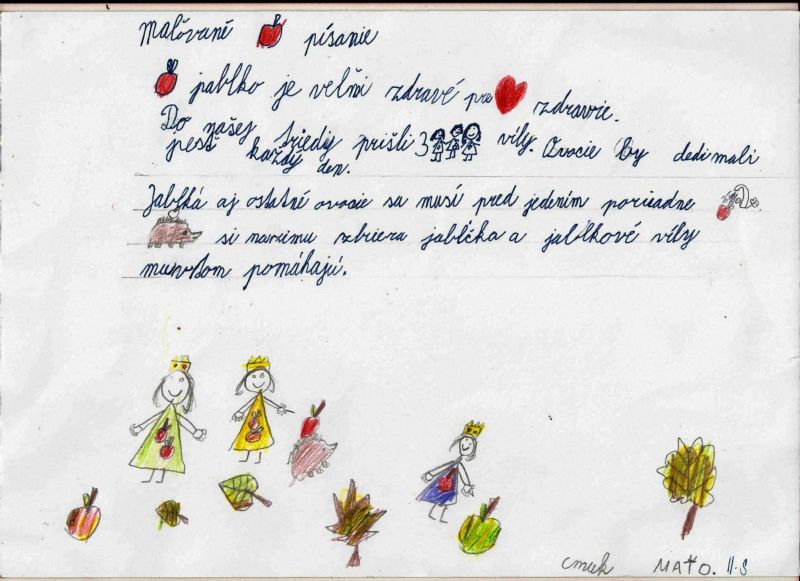 Maľované písanie
jablko je veľmi zdravé pre zdravie.
Do našej triedy prišli 3 víly. Ovocie by dedi mali
jesť každý den.
Jabľká aj ostatné ovocie sa musí pred jedením poriadne
si na zimu zbiera jabĺčka a jablkové víly
mu v tom pomáhajú.
cmuk MAŤO. II.S